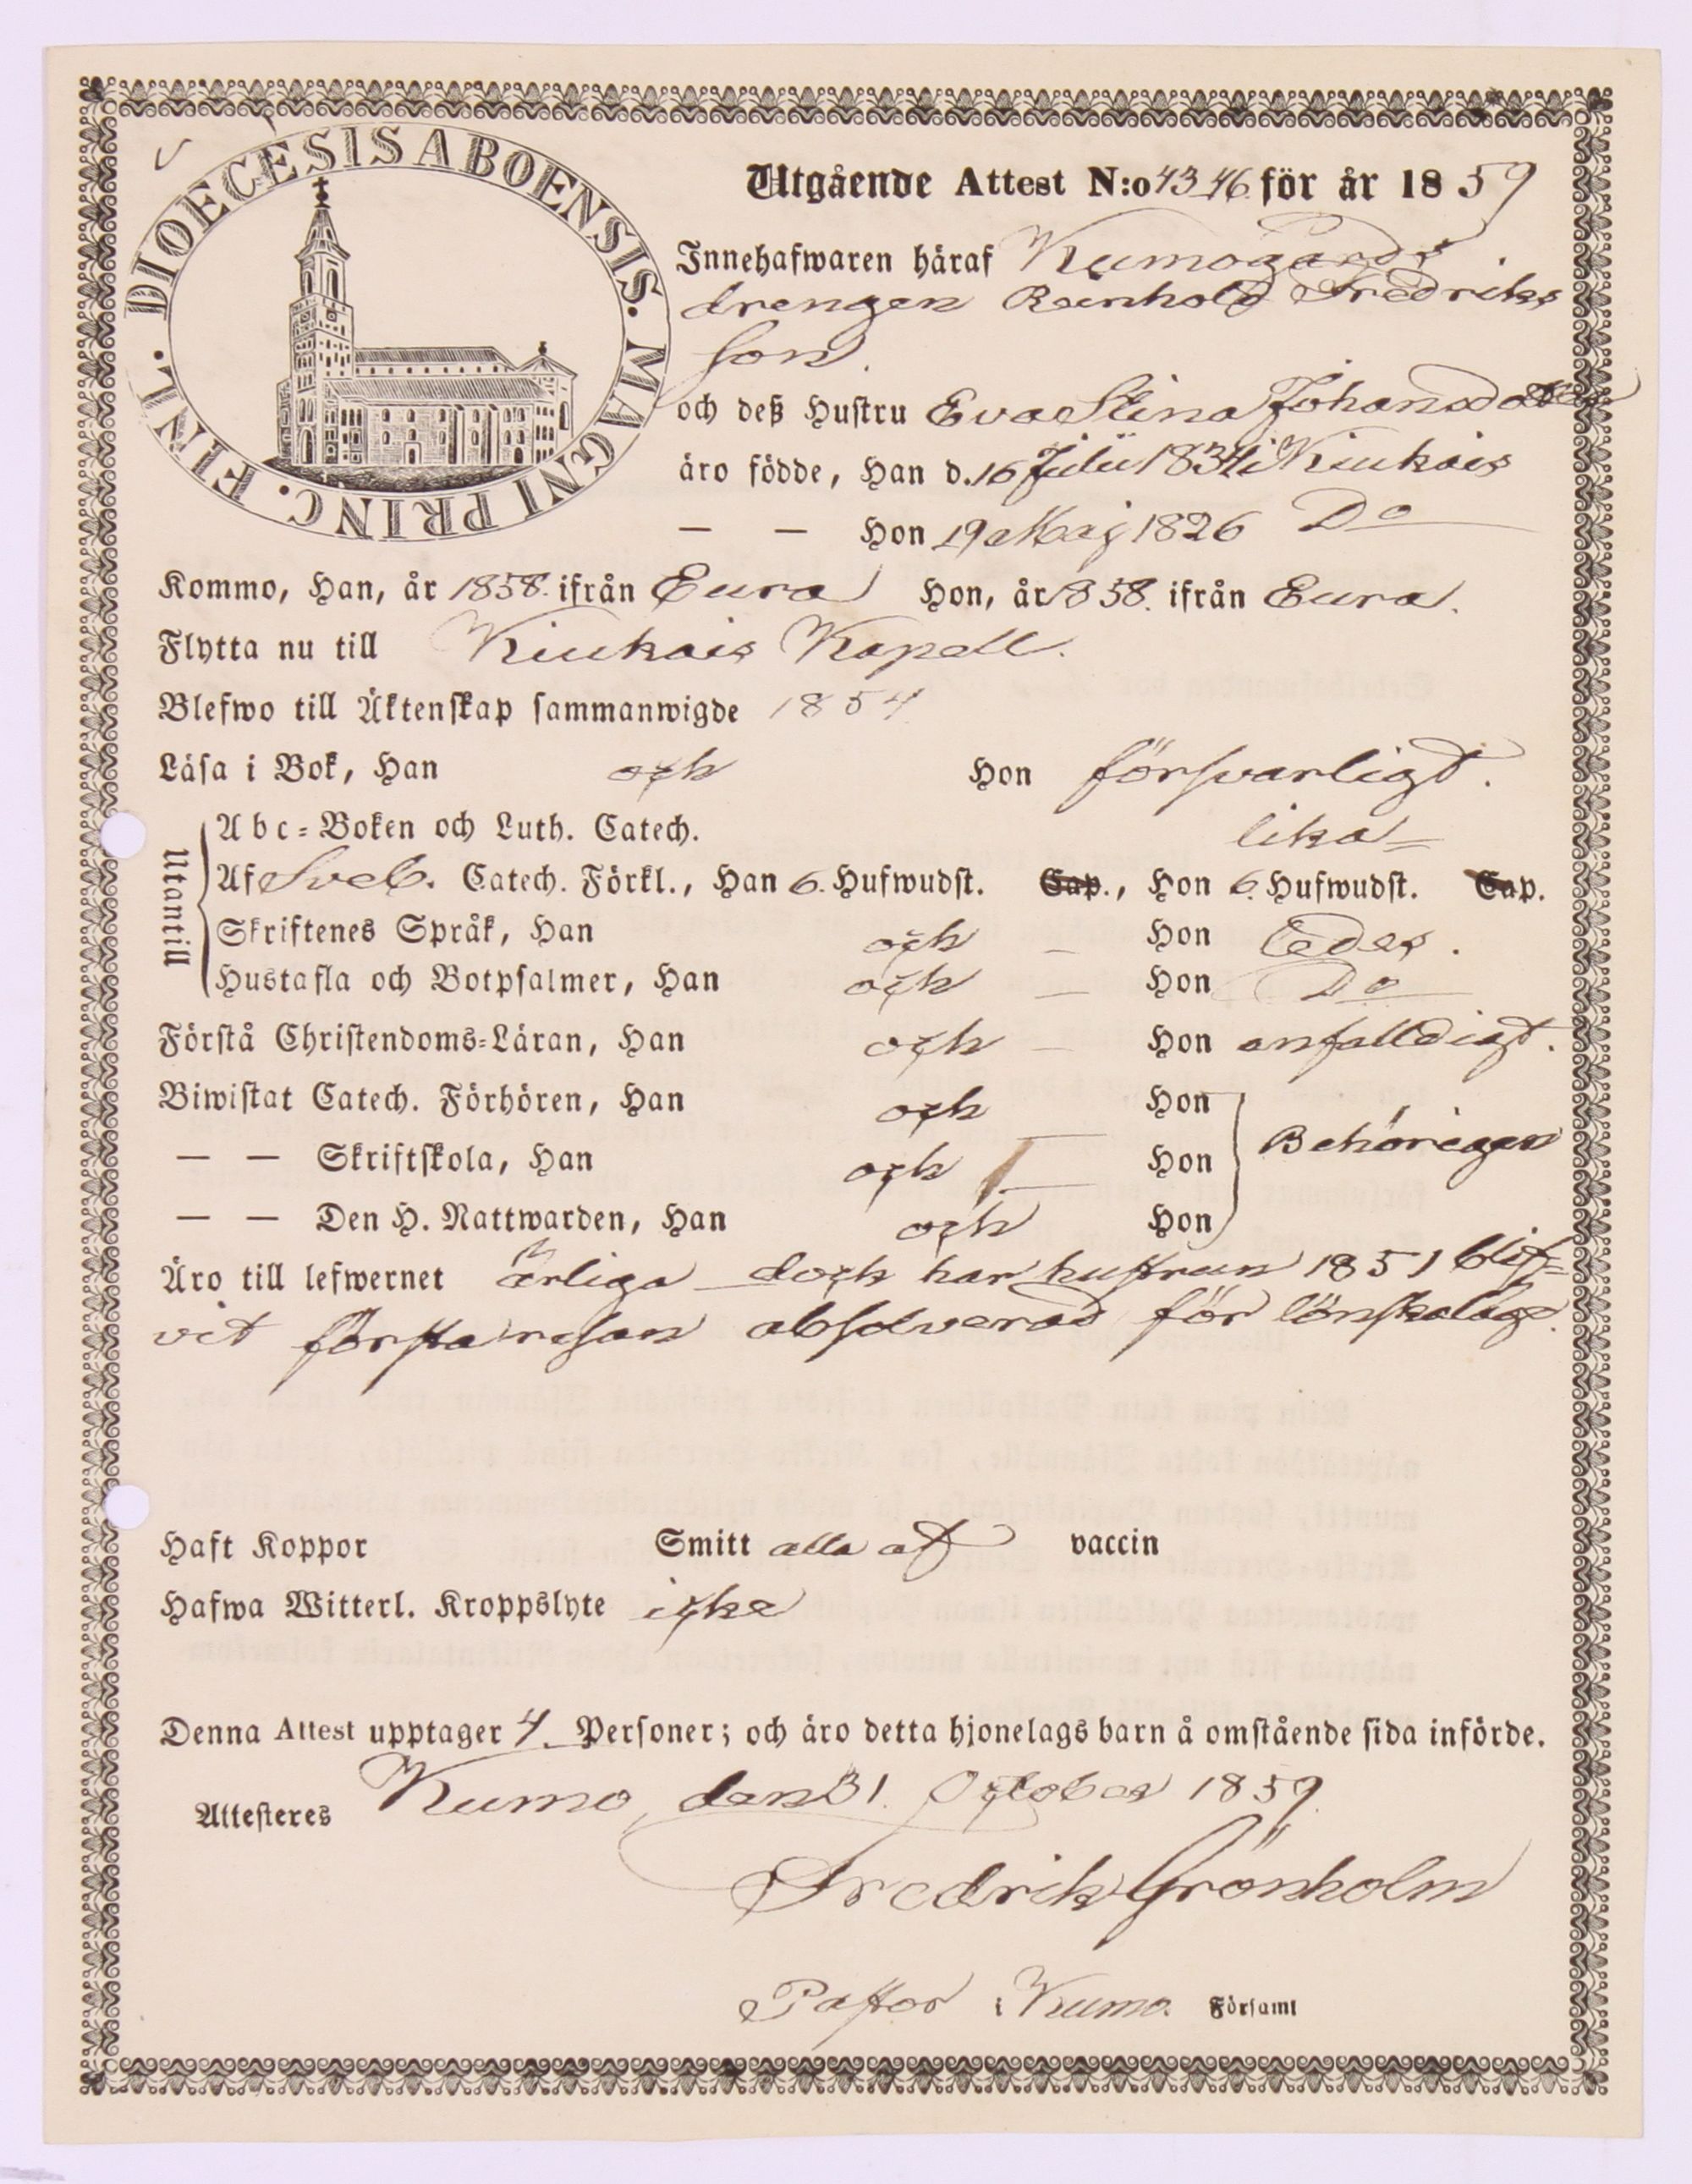 DIOECESIS ABOENSIS. MAGNI PRINC. FINL.
Utgående Attest N:o 43 46. för år 1859
Innehafwaren häraf Kumogårds
drengen Reinhold Fredriks
son.
och deß Hustru Eva Stina Johansdotter
äro födde, Han d. 16 Julii 1834 i Kiukais
— — Hon 19 Maj 1826 Do
Kommo, Han, år 1858. ifrån Eura Hon, år 1858. ifrån Eura.
Flytta nu till Kiukais Kapell.
Blefwo till Äktenskap sammanwigde 1854.
Läsa i Bok, Han och Hon försvarligt.
Utantill
Abc-Boken och Luth. Catech. lika
Af Sveb. Catech. Förkl., Han 6. Hufwudst. Cap., Hon 6. Hufwudst. Cap.
Skriftenes Språk, Han och — Hon Ledes.
Hustafla och Botpsalmer, Han och — Hon Do
Förstå Christendoms-Läran, Han och — Hon enfalldigt.
Biwistat Catech. Förhören, Han och Hon
— — Skriftskola, Han och — Hon Behörigen
— — Den H. Nattwarden, Han och Hon
Äro till lefwernet ärliga doch har hustrun 1851 blif-
vit första resan absolverad för lönskaläge.
Haft Koppor Smitt alla af vaccin
Hafwa Witterl. Kroppslyte icke
Denna Attest upptager 4 Personer; och äro detta hjonelags barn å omstående sida införde.
Attesteres Kumo den 31. October 1859.
Fredrik Grönholm
Pastor i Kumo. Församl